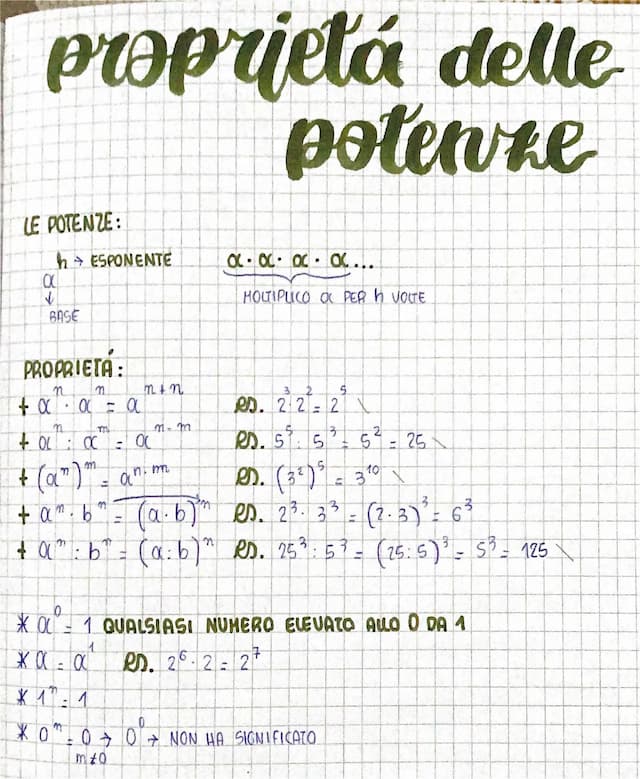 proprietá delle
potenze
LE POTENZE:
n → ESPONENTE
a · a · a · a ...
a
↓
BASE
MOLTIPLICO a PER n VOLTE
PROPRIETÁ:
+ aⁿ · aⁿ = aⁿ⁺ⁿ ES. 2³ · 2² = 2⁵ \
+ aⁿ : aᵐ = aⁿ⁻ᵐ ES. 5⁵ : 5³ = 5² = 25 \
+ (aⁿ)ᵐ = aⁿ·ᵐ ES. (3²)⁵ = 3¹⁰ \
+ aⁿ · bⁿ = (a · b)ⁿ ES. 2³ · 3³ = (2 · 3)³ = 6³
+ aⁿ : bⁿ = (a : b)ⁿ ES. 25³ : 5³ = (25 : 5)³ = 5³ = 125 \
* a⁰ = 1 QUALSIASI NUMERO ELEVATO ALLO 0 DA 1
* a = a¹ ES. 2⁶ · 2 = 2⁷
* 1ⁿ = 1
* 0ᵐ = 0 → 0⁰ → NON HA SIGNIFICATO
m≠0